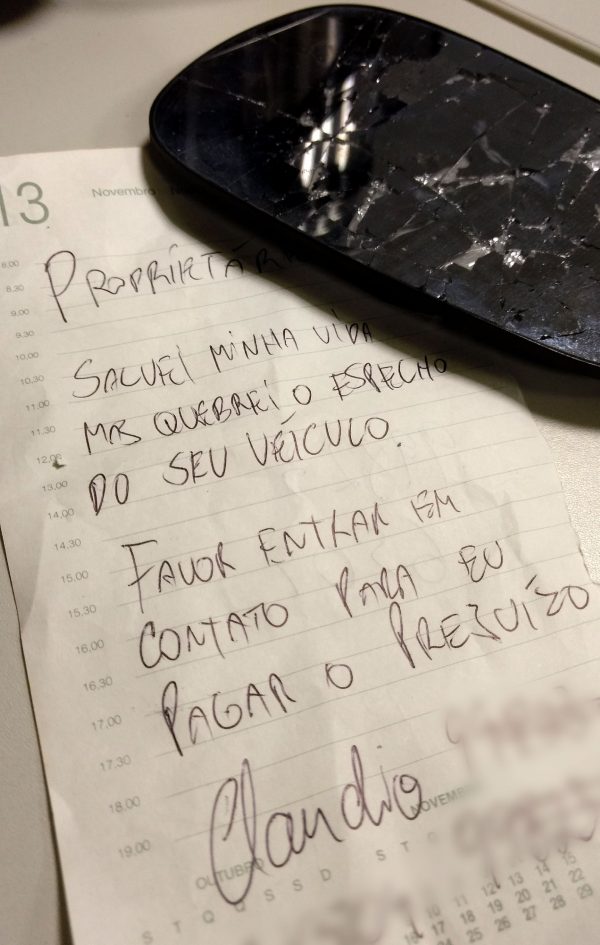 13
Novembro
8.00
8.30
9.00
9.30
10.00
10.30
11.00
11.30
12.00
13.00
14.00
14.30
15.00
15.30
16.00
16.30
17.00
17.30
18.00
19.00
SALVEI MINHA VIDA
MAS QUEBREI O ESPECHO
DO SEU VEÍCULO.
FAVOR ENTRAR EM
CONTATO PARA EU
PAGAR O PREJUÍZO
Claudio
OUTUBRO
S T Q Q S S D
S T
10 11 12 13 14 15
16 17 18 19 20 21 22
24 25 26 27 28 29